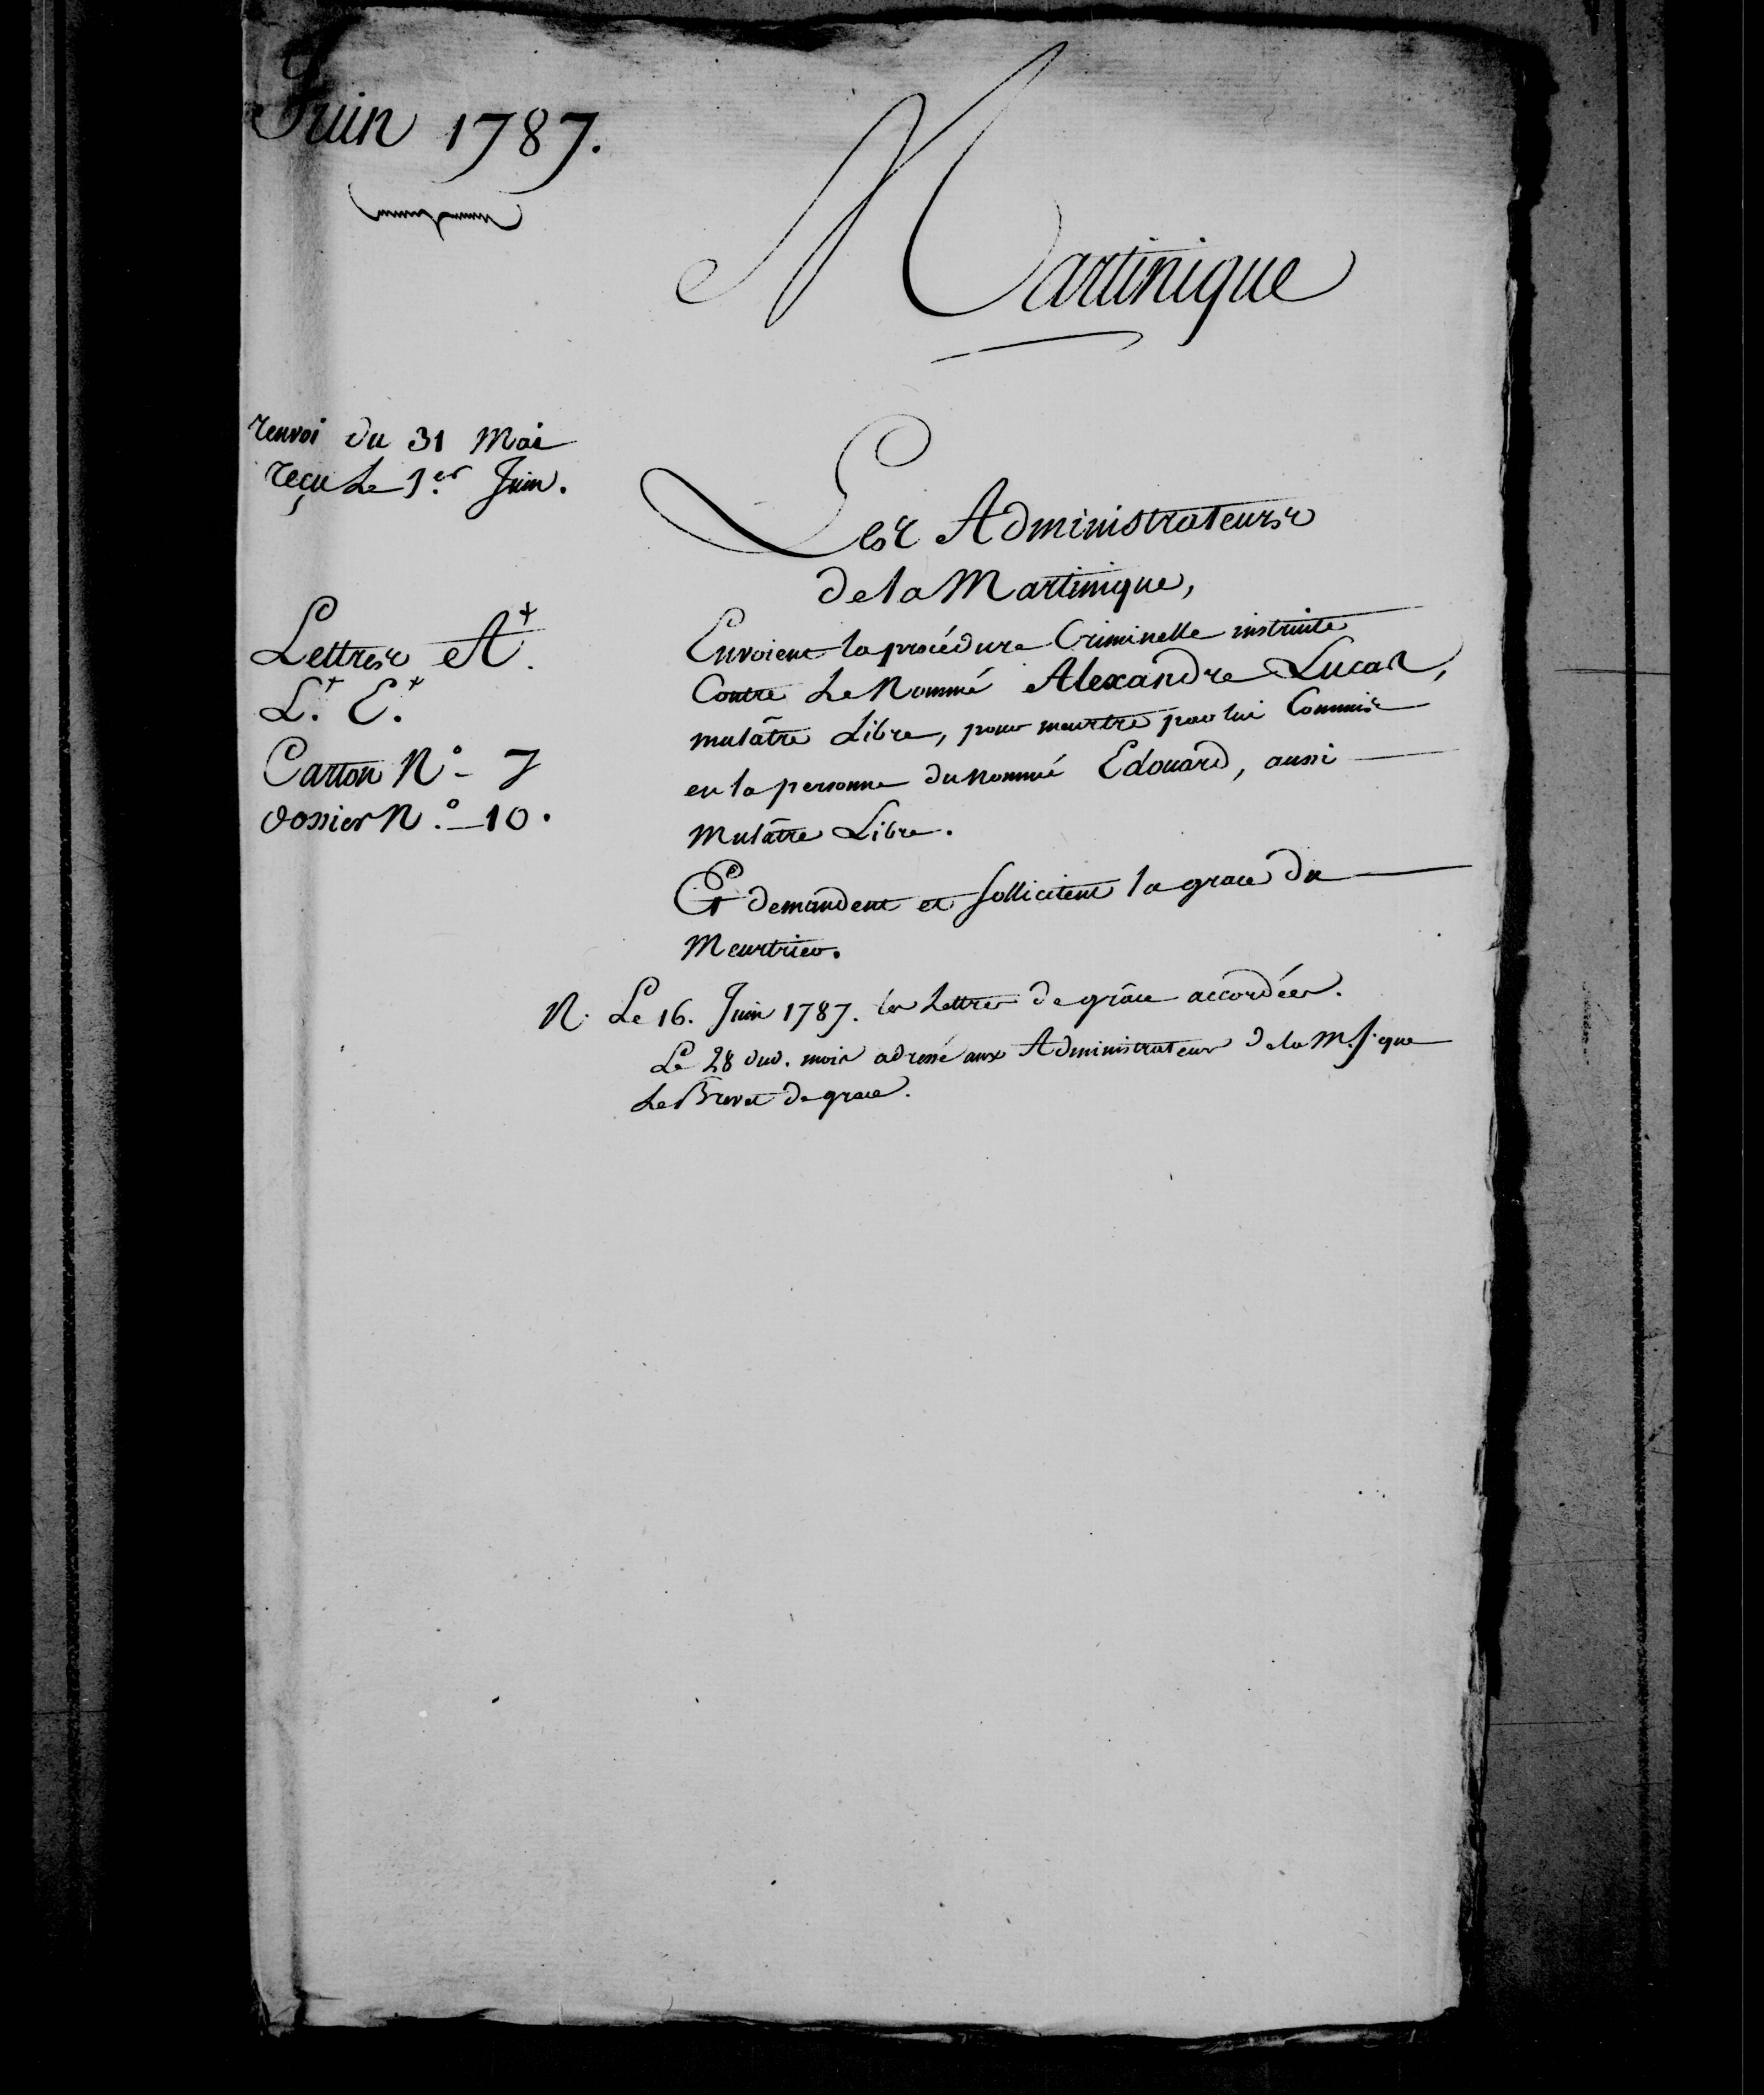 Juin 1787.
Martinique
renvoi du 31 Mai
reçu Le 1.er Juin.
Les Administrateurs
de la Martinique,
Lettres A+.
L.+ E.+
Carton N.° - 7
dossier N.° - 10.
Envoient la procédure Criminelle instruite
Contre Le Nommé Alexandre Lucas,
mulâtre Libre, pour meurtre par lui Commis
en la personne du nommé Edouard, aussi
Mulâtre Libre.
Et demandent et sollicitent la grace du
Meurtrier.
N. Le 16. Juin 1787. les Lettres de grâce accordées.
Le 28 dud. mois adressé aux Administrateurs de la M.que
Le Brevet de grace.